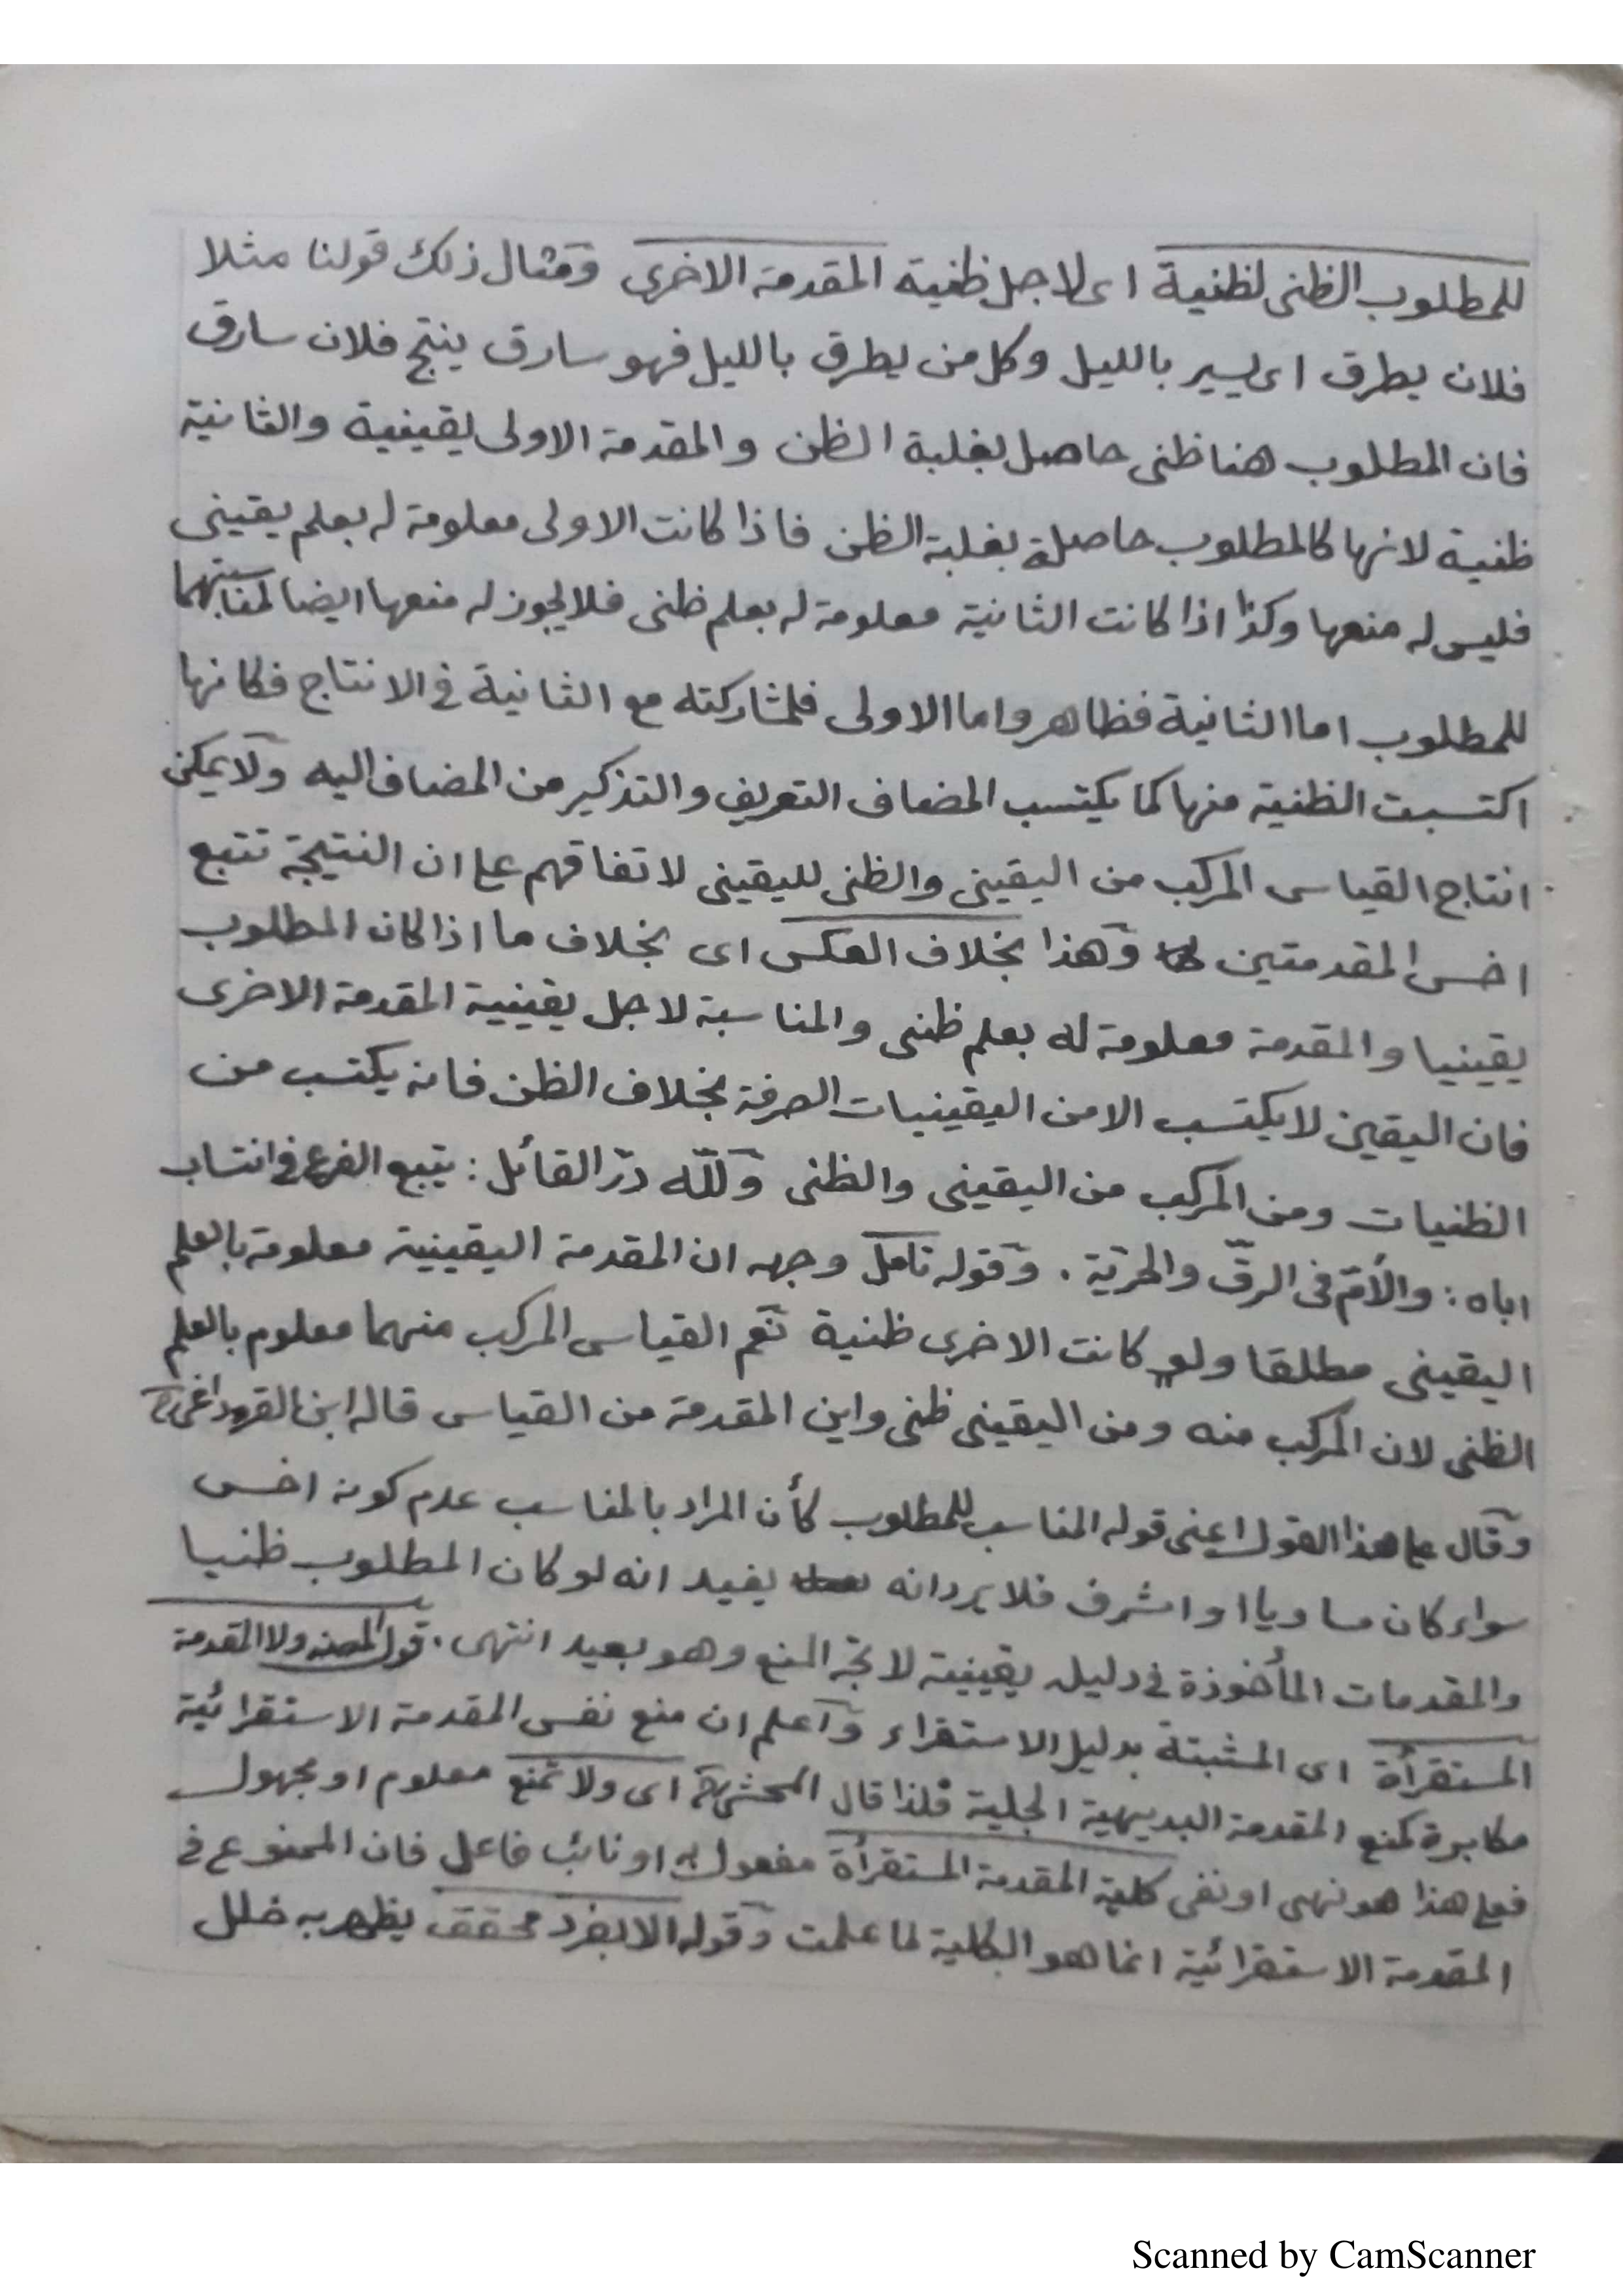 للمطلوب الظنى لظنية اى لاجل ظنية المقدمة الاخرى ومثال ذلك قولنا مثلا
فلان يطرق اى يسير بالليل وكل من يطرق بالليل فهو سارق ينتج فلان سارق
فان المطلوب هنا ظنى حاصل بغلبة الظن والمقدمة الاولى يقينية والثانية
ظنية لانها كالمطلوب حاصلة بغلبة الظن فاذا كانت الاولى معلومة له بعلم يقينى
فليس له منعها وكذا اذا كانت الثانية معلومة له بعلم ظنى فلا يجوز له منعها ايضا لمناسبتهما
للمطلوب اما الثانية فظاهر واما الاولى فلمشاركته مع الثانية فى الانتاج فكانها
اكتسبت الظنية منها كما يكتسب المضاف التعريف والتذكير من المضاف اليه ولا يمكن
انتاج القياس المركب من اليقينى والظنى لليقينى لاتفاقهم على ان النتيجة تتبع
اخس المقدمتين وهذا بخلاف العكس اى بخلاف ما اذا كان المطلوب
يقينيا والمقدمة معلومة له بعلم ظنى والمناسبة لاجل يقينية المقدمة الاخرى
فان اليقين لا يكتسب الا من اليقينيات الصرفة بخلاف الظن فانه يكتسب من
الظنيات ومن المركب من اليقينى والظنى وللّه درّ القائل : يتبع الفرع فى انتساب
اباه : والأمّ فى الرقّ والحرّية . وقوله تامل وجهه ان المقدمة اليقينية معلومة بالعلم
اليقينى مطلقا ولو كانت الاخرى ظنية نعم القياس المركب منهما معلوم بالعلم
الظنى لان المركب منه ومن اليقينى ظنى واين المقدمة من القياس قاله ابن القرداغى
وقال على هذا القول اعنى قوله المناسب للمطلوب كأن المراد بالمناسب عدم كونه اخس
سواء كان مساويا او اشرف فلا يرد انه يفيد انه لو كان المطلوب ظنيا
والمقدمات المأخوذة فى دليل يقينية لاتجه المنع وهو بعيد انتهى . قول المصنه ولا المقدمة
المستقرأة اى المثبتة بدليل الاستقراء واعلم ان منع نفس المقدمة الاستقرائية
مكابرة كمنع المقدمة البديهية الجلية فلذا قال المحشى اى ولا تمنع معلوم او مجهول
فعلى هذا هو نهى او نفى كلية المقدمة المستقرأة مفعول به او نائب فاعل فان الممنوع فى
المقدمة الاستقرائية انما هو الكلية لما علمت وقوله الا بفرد محقق يظهر به خلل
Scanned by CamScanner